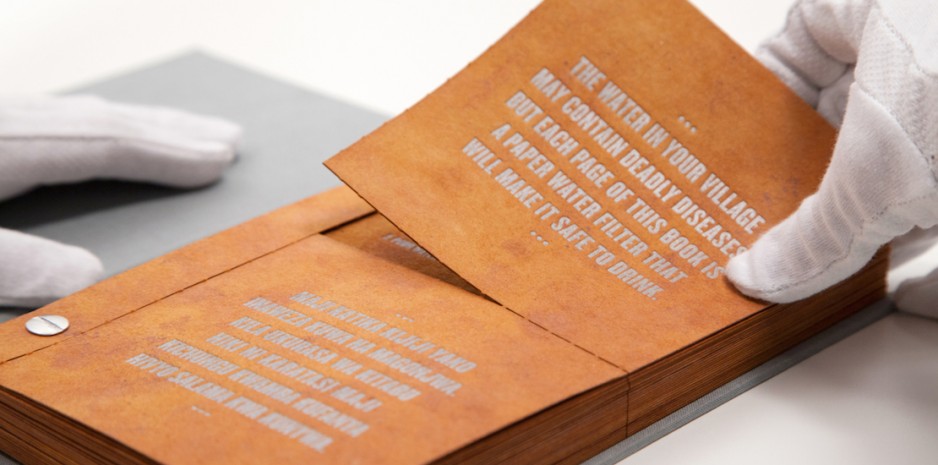 ...
THE WATER IN YOUR VILLAGE
MAY CONTAIN DEADLY DISEASES
BUT EACH PAGE OF THIS BOOK IS
A PAPER WATER FILTER THAT
WILL MAKE IT SAFE TO DRINK.
...
...
MAJI KATIKA KIJIJI YAKO
YANAWEZA KUWA NA MAGONJWA.
ILA UKURASA WA KITABU
HIKI NI KARATASI MAJI
SALAMA KWA KUNYWA.
...